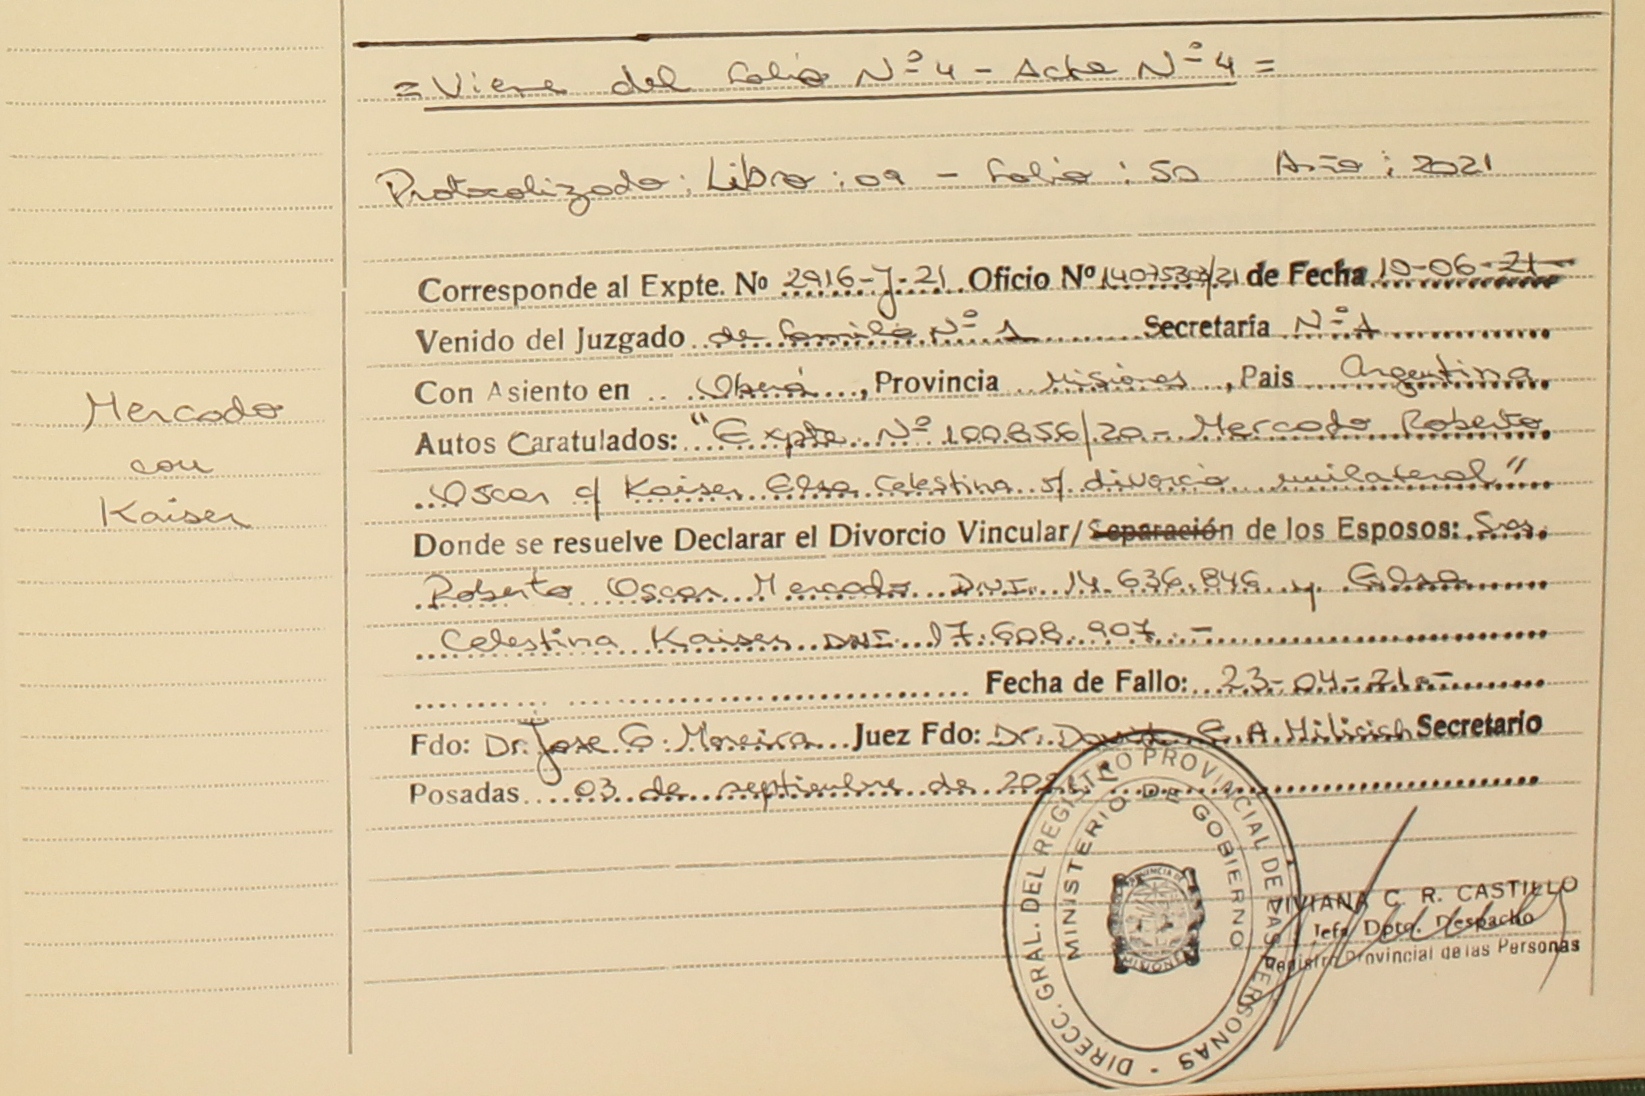 = Viene del folio Nº 4 - Acta Nº 4 =
Protocolizado: Libro: 09 - folio: 50 Año: 2021
Corresponde al Expte. Nº 2916-J-21 Oficio Nº /21 de Fecha 10-06-21
Venido del Juzgado de familia Nº 1 Secretaría Nº 1
Con Asiento en Oberá, Provincia Misiones, Pais Argentina
Autos Caratulados: "Expte. Nº 100.856/20 - Mercado Roberto
Oscar c/ Kaiser Elsa Celestina s/ divorcio unilateral"
Donde se resuelve Declarar el Divorcio Vincular/ Separación de los Esposos: Sres.
Roberto Oscar Mercado DNI. 14.636.846 y Elsa
Celestina Kaiser DNI. 17.608.907.-
Fecha de Fallo: 23-04-21.-
Fdo: Dr. Jose G. Moreira Juez Fdo: Dr. E. A. Milicich Secretario
Posadas 03 de septiembre de 2021
Mercado
con
Kaiser
DIRECC. GRAL. DEL REGISTRO PROVINCIAL DE LAS PERSONAS -
MINISTERIO DE GOBIERNO
PROVINCIA DE
MISIONES
VIVIANA C. R. CASTILLO
Jefa Dpto. Despacho
Registro Provincial de las Personas